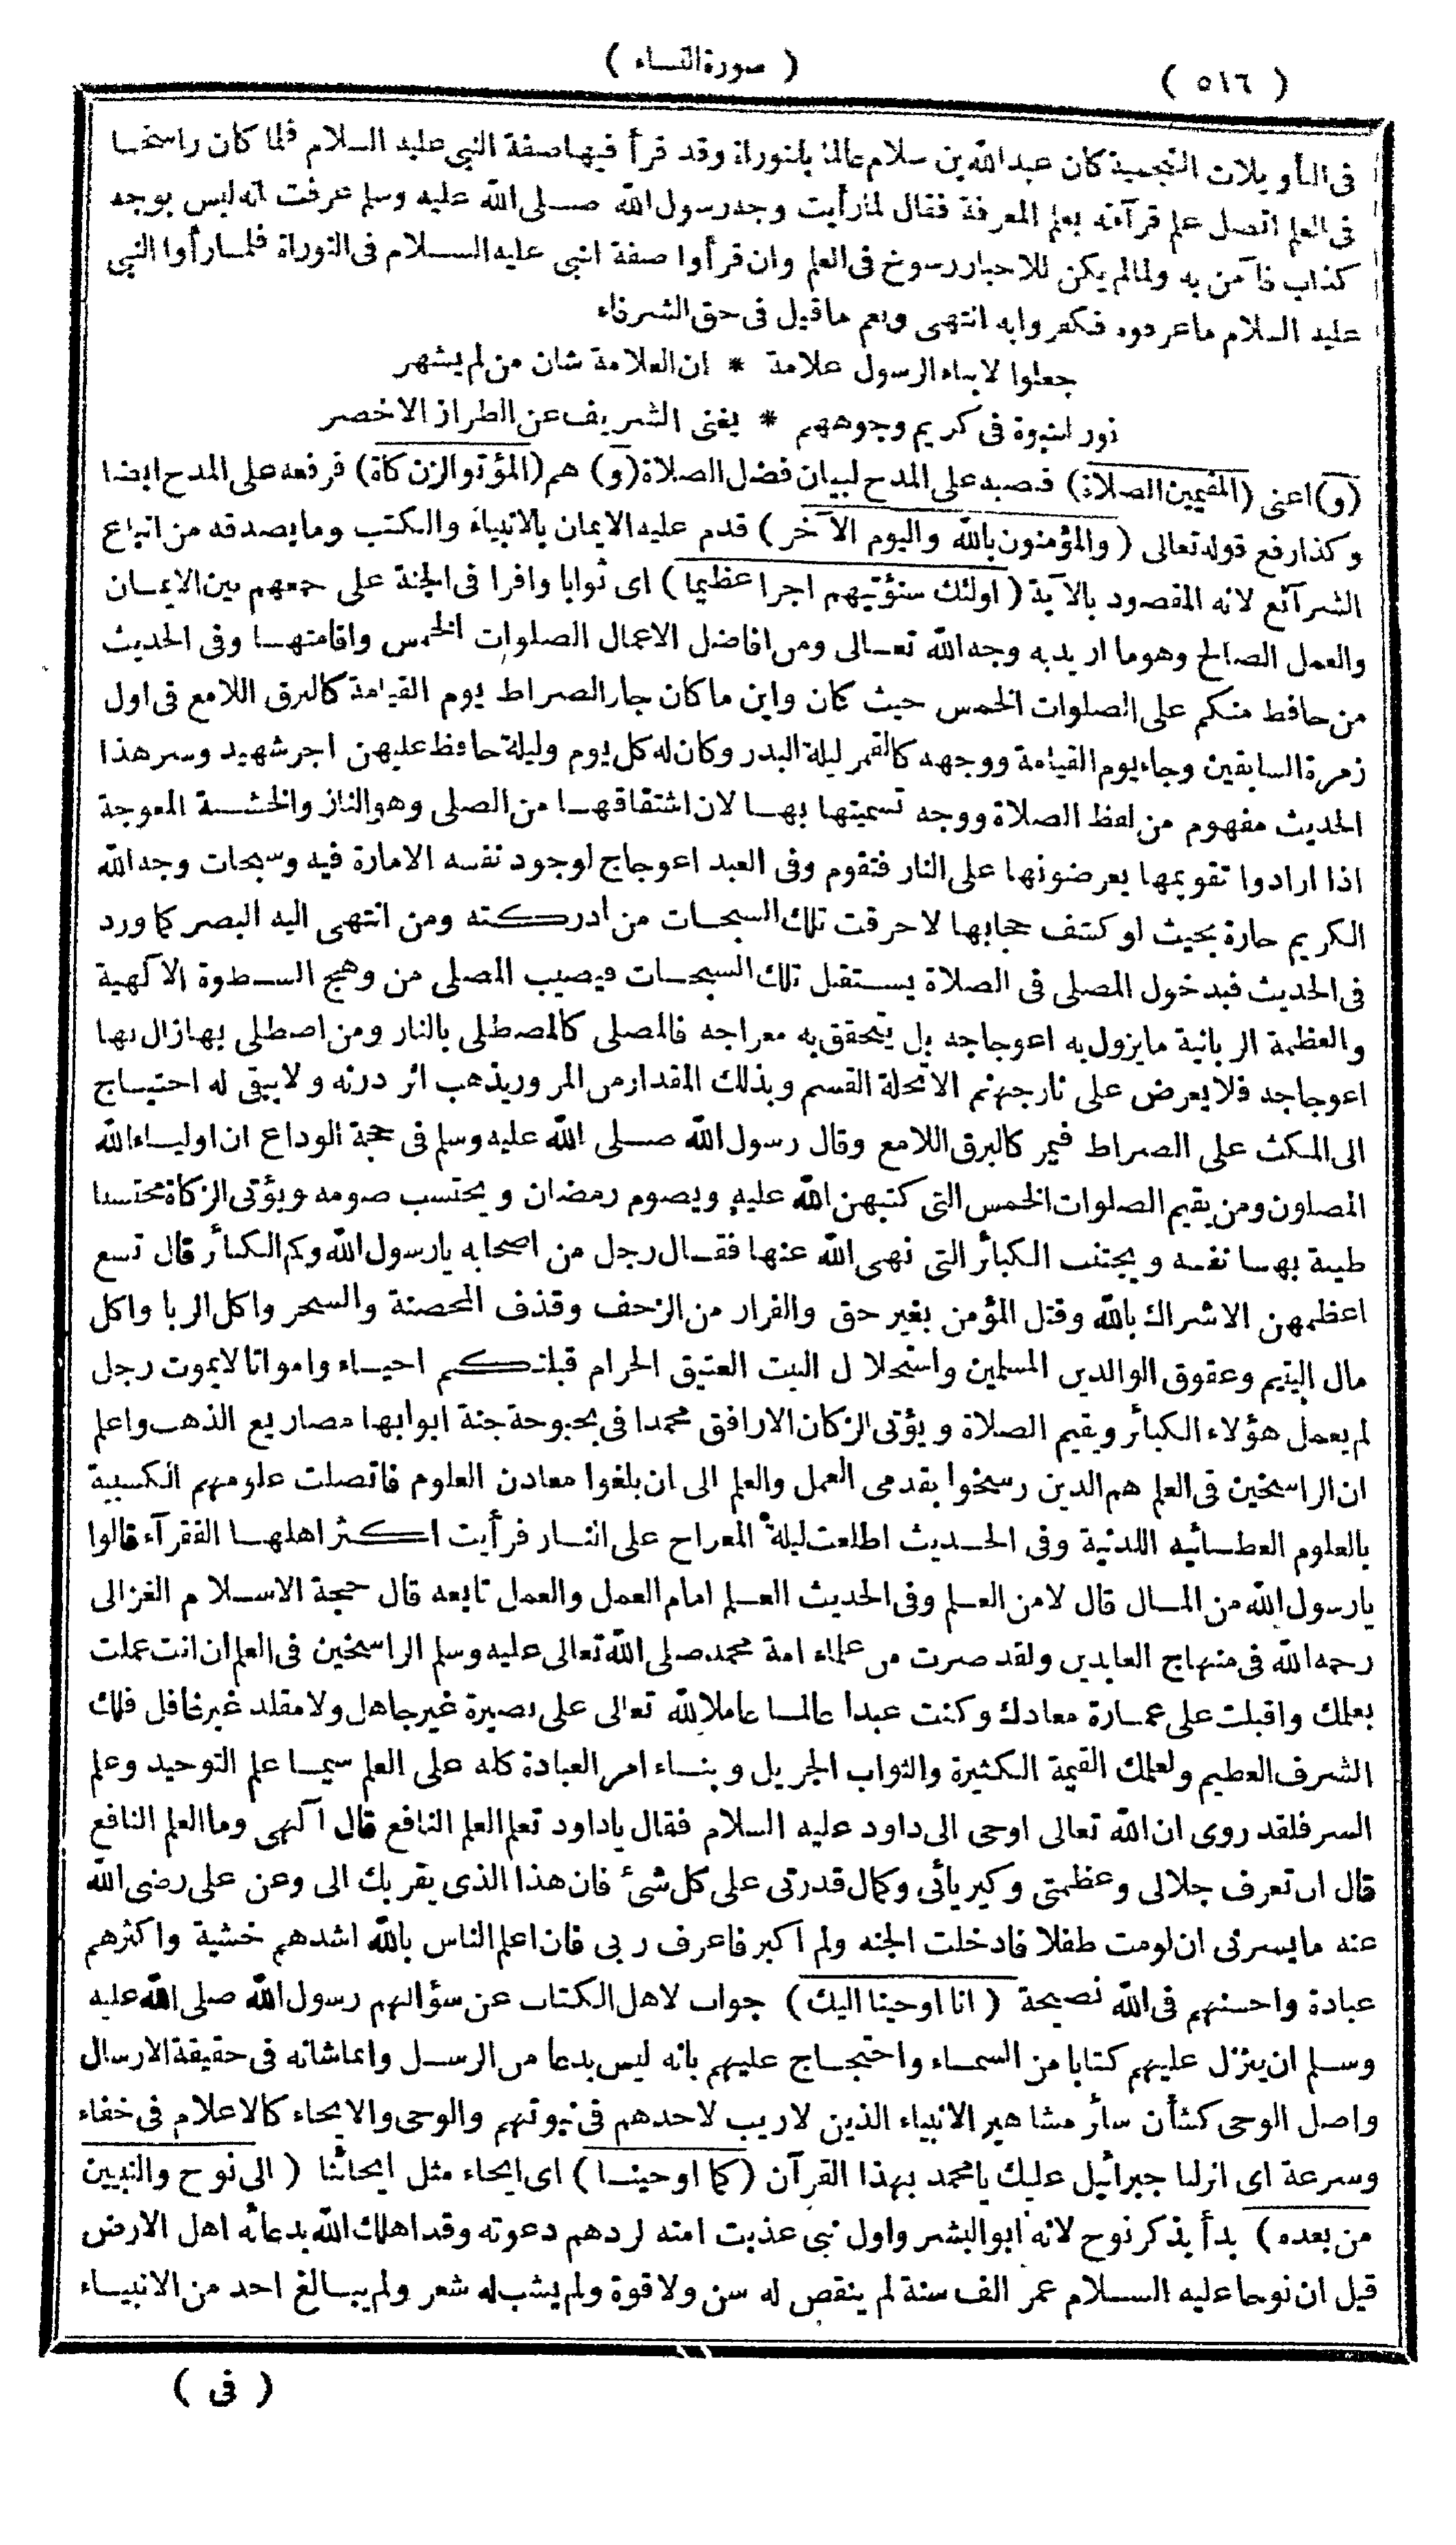 ( ٥١٦ )
( سورة النساء )
فى التأويلات النجمية كان عبد الله بن سلام عالما بالتوراة وقد قرأ فيها صفة النبى عليه السلام فلما كان راسخا
فى العلم اتصل علم قرآءته بعلم المعرفة فقال لما رأيت وجه رسول الله صلى الله عليه وسلم عرفت انه ليس بوجه
كذاب فآمن به ولما لم يكن للاحبار رسوخ فى العلم وان قرأوا صفة النبى عليه السلام فى التوراة فلما رأوا النبى
عليه السلام ما عرفوه فكفروا به انتهى ونعم ما قيل فى حق الشرفاء
جعلوا لابناء الرسول علامة * ان العلامة شان من لم يشهر
نور النبوة فى كريم وجوههم * يغنى الشريف عن الطراز الاخضر
(و) اعنى (المقيمين الصلاة) فنصبه على المدح لبيان فضل الصلاة (و) هم (المؤتوا الزكاة) فرفعه على المدح ايضا
وكذا رفع قوله تعالى (والمؤمنون بالله واليوم الآخر) قدم عليه الايمان بالانبياء والكتب وما يصدقه من اتباع
الشرآئع لانه المقصود بالآية (اولئك سنؤتيهم اجرا عظيما) اى ثوابا وافرا فى الجنة على جمعهم بين الايمان
والعمل الصالح وهو ما اريد به وجه الله تعالى ومن افاضل الاعمال الصلوات الخمس واقامتها وفى الحديث
من حافظ منكم على الصلوات الخمس حيث كان واين ما كان جاز الصراط يوم القيامة كالبرق اللامع فى اول
زمرة السابقين وجاء يوم القيامة ووجهه كالقمر ليلة البدر وكان له كل يوم وليلة حافظ عليهن اجر شهيد وسر هذا
الحديث مفهوم من لفظ الصلاة ووجه تسميتها بها لان اشتقاقها من الصلى وهو النار والخشبة المعوجة
اذا ارادوا تقويمها يعرضونها على النار فتقوم وفى العبد اعوجاج لوجود نفسه الامارة فيه وسبحات وجه الله
الكريم حارة بحيث لو كشف حجابها لاحرقت تلك السبحات من ادركته ومن انتهى اليه البصر كما ورد
فى الحديث فبدخول المصلى فى الصلاة يستقبل تلك السبحات فيصيب المصلى من وهج السطوة الآلهية
والعظمة الربانية ما يزول به اعوجاجه بل يتحقق به معراجه فالمصلى كالمصطلى بالنار ومن اصطلى بها زال بها
اعوجاجه فلا يعرض على نار جهنم الا تحلة القسم وبذلك المقدار من المرور يذهب اثر درنه ولا يبقى له احتياج
الى المكث على الصراط فيمر كالبرق اللامع وقال رسول الله صلى الله عليه وسلم فى حجة الوداع ان اولياء الله
المصلون ومن يقيم الصلوات الخمس التى كتبهن الله عليه ويصوم رمضان ويحتسب صومه ويؤتى الزكاة محتسبا
طيبة بها نفسه ويجتنب الكبائر التى نهى الله عنها فقال رجل من اصحابه يا رسول الله وكم الكبائر قال تسع
اعظمهن الاشراك بالله وقتل المؤمن بغير حق والفرار من الزحف وقذف المحصنة والسحر واكل الربا واكل
مال اليتيم وعقوق الوالدين المسلمين واستحلال البيت العتيق الحرام قبلتكم احياء وامواتا لا يموت رجل
لم يعمل هؤلاء الكبائر ويقيم الصلاة ويؤتى الزكاة الا رافق محمدا فى بحبوحة جنة ابوابها مصاريع الذهب واعلم
ان الراسخين فى العلم هم الذين رسخوا بقدمى العمل والعلم الى ان بلغوا معادن العلوم فاتصلت علومهم الكسبية
بالعلوم العطائيه اللدنية وفى الحديث اطلعت ليلة المعراج على النار فرأيت اكثر اهلها الفقرآء قالوا
يا رسول الله من المال قال لا من العلم وفى الحديث العلم امام العمل والعمل تابعه قال حجة الاسلام الغزالى
رحمه الله فى منهاج العابدين ولقد صرت من علماء امة محمد صلى الله تعالى عليه وسلم الراسخين فى العلم ان انت عملت
بعلمك واقبلت على عمارة معادك وكنت عبدا عالما عاملا لله تعالى على بصيرة غير جاهل ولا مقلد غير غافل فلك
الشرف العظيم ولعلمك القيمة الكثيرة والثواب الجزيل وبناء امر العبادة كله على العلم سيما علم التوحيد وعلم
السر فلقد روى ان الله تعالى اوحى الى داود عليه السلام فقال يا داود تعلم العلم النافع قال آلهى وما العلم النافع
قال ان تعرف جلالى وعظمتى وكبريائى وكمال قدرتى على كل شئ فان هذا الذى يقربك الى وعن على رضى الله
عنه ما يسرنى ان لو مت طفلا فادخلت الجنه ولم اكبر فاعرف ربى فان اعلم الناس بالله اشدهم خشية واكثرهم
عبادة واحسنهم فى الله نصيحة (انا اوحينا اليك) جواب لاهل الكتاب عن سؤالهم رسول الله صلى الله عليه
وسلم ان ينزل عليهم كتابا من السماء واحتجاج عليهم بانه ليس بدعا من الرسل وانما شانه فى حقيقة الارسال
واصل الوحى كشأن سائر مشاهير الانبياء الذين لا ريب لاحدهم فى نبوتهم والوحى والايحاء كالاعلام فى خفاء
وسرعة اى انزلنا جبرائيل عليك يا محمد بهذا القرآن (كما اوحينا) اى ايحاء مثل ايحائنا (الى نوح والنبيين
من بعده) بدأ بذكر نوح لانه ابو البشر واول نبى عذبت امته لردهم دعوته وقد اهلك الله بدعائه اهل الارض
قيل ان نوحا عليه السلام عمر الف سنة لم ينقص له سن ولا قوة ولم يشب له شعر ولم يبالغ احد من الانبياء
( فى )